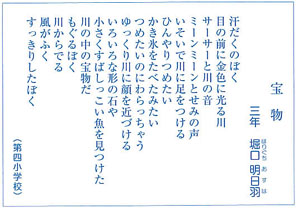 宝物
三年 堀口 明日羽
ほりぐち あすは
汗だくのぼく
目の前に金色に光る川
サーサーと川の音
ミーンミーンとせみの声
いそいで川に足をつける
ひんやりつめたい
かき氷をたべたみたい
つめたいのにわらっちゃう
ゆっくり川に顔を近づける
いろいろな形の石や
小さくすばしっこい魚を見つけた
川の中の宝物だ
もぐるぼく
川からでる
風がふく
すっきりしたぼく
(第四小学校)